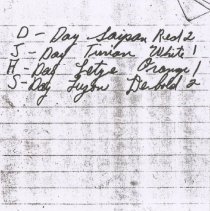 D - Day Saipan Red 2
J - Day Tinian White 1
H - Day Leyte Orange 1
S - Day Luzon Blue